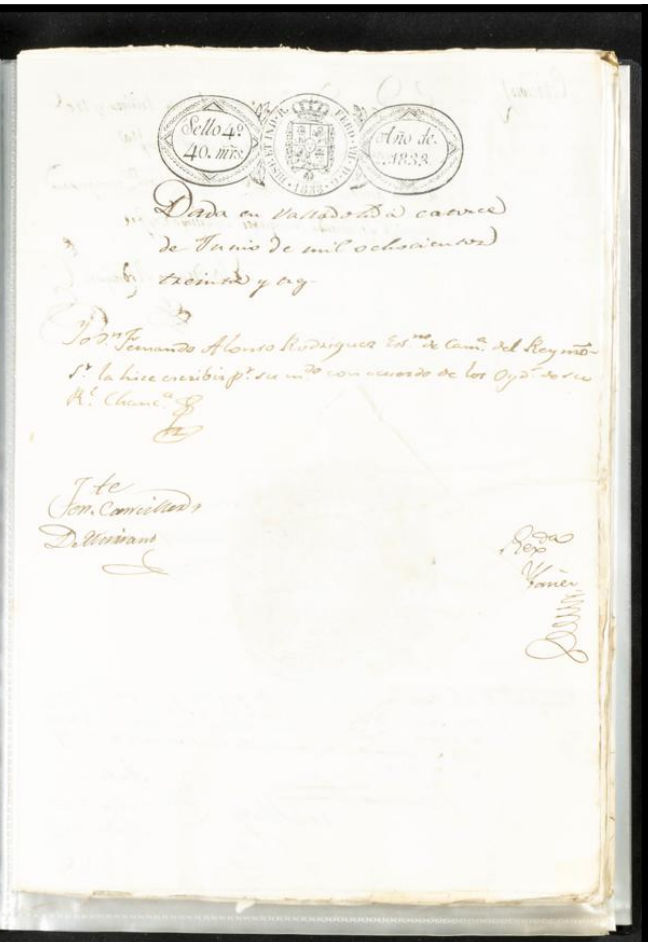 Sello 4º
40. mrs.
HISP. ET IND. R. FERD. VII. D. G. 1833.
Año de.
1833.
Dada en Valladolid a catorce
de Junio de mil ochocientos
treinta y tres.
Yo Dn Fernando Alonso Rodriguez Esno de Cama. del Rey nro
Sr. la hice escribir pr. su mdo con acuerdo de los Oyds. de su
Rl. Chanca.
Tte
Regda